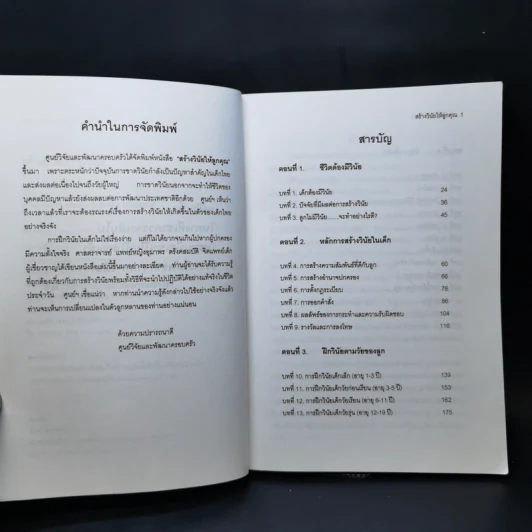 คำนำในการจัดพิมพ์
ศูนย์วิจัยและพัฒนาครอบครัวได้จัดพิมพ์หนังสือ "สร้างวินัยให้ลูกคุณ"
ขึ้นมา เพราะตระหนักว่าปัจจุบันการขาดวินัยกำลังเป็นปัญหาสำคัญในเด็กไทย
และส่งผลต่อเนื่องไปจนถึงวัยผู้ใหญ่ การขาดวินัยนอกจากจะทำให้ชีวิตของ
บุคคลมีปัญหาแล้วยังส่งผลต่อการพัฒนาประเทศชาติอีกด้วย ศูนย์ฯ เห็นว่า
ถึงเวลาแล้วที่เราจะต้องรณรงค์เรื่องการสร้างวินัยให้เกิดขึ้นในตัวของเด็กไทย
อย่างจริงจัง
การฝึกวินัยในเด็กไม่ใช่เรื่องง่าย แต่ก็ไม่ได้ยากจนเกินไปหากผู้ปกครอง
มีความตั้งใจจริง ศาสตราจารย์ แพทย์หญิงอุมาพร ตรังคสมบัติ จิตแพทย์เด็ก
ผู้เชี่ยวชาญได้เขียนหนังสือเล่มนี้ขึ้นมาอย่างละเอียด ท่านผู้อ่านจะได้รับความรู้
ที่ถูกต้องเกี่ยวกับการสร้างวินัยพร้อมทั้งวิธีที่จะนำไปปฏิบัติได้อย่างแท้จริงในชีวิต
ประจำวัน ศูนย์ฯ เชื่อแน่ว่า หากท่านนำความรู้ดังกล่าวไปใช้อย่างจริงจังแล้ว
ท่านจะเห็นการเปลี่ยนแปลงในตัวลูกหลานของท่านอย่างแน่นอน
ด้วยความปรารถนาดี
ศูนย์วิจัยและพัฒนาครอบครัว
สร้างวินัยให้ลูกคุณ 1
สารบัญ
ตอนที่ 1. ชีวิตต้องมีวินัย
บทที่ 1. เด็กต้องมีวินัย 24
บทที่ 2. ปัจจัยที่มีผลต่อการสร้างวินัย 36
บทที่ 3. ลูกไม่มีวินัย.....จะทำอย่างไรดี? 45
ตอนที่ 2. หลักการสร้างวินัยในเด็ก
บทที่ 4. การสร้างความสัมพันธ์ที่ดีกับลูก 60
บทที่ 5. การสร้างอำนาจปกครอง 68
บทที่ 6. การตั้งกฎระเบียบ 78
บทที่ 7. การออกคำสั่ง 88
บทที่ 8. ผลลัพธ์ของการกระทำและความรับผิดชอบ 104
บทที่ 9. รางวัลและการลงโทษ 116
ตอนที่ 3. ฝึกวินัยตามวัยของลูก
บทที่ 10. การฝึกวินัยเด็กเล็ก (อายุ 1-3 ปี) 139
บทที่ 11. การฝึกวินัยเด็กวัยก่อนเรียน (อายุ 3-5 ปี) 153
บทที่ 12. การฝึกวินัยเด็กวัยเรียน (อายุ 6-11 ปี) 162
บทที่ 13. การฝึกวินัยเด็กวัยรุ่น (อายุ 12-19 ปี) 175